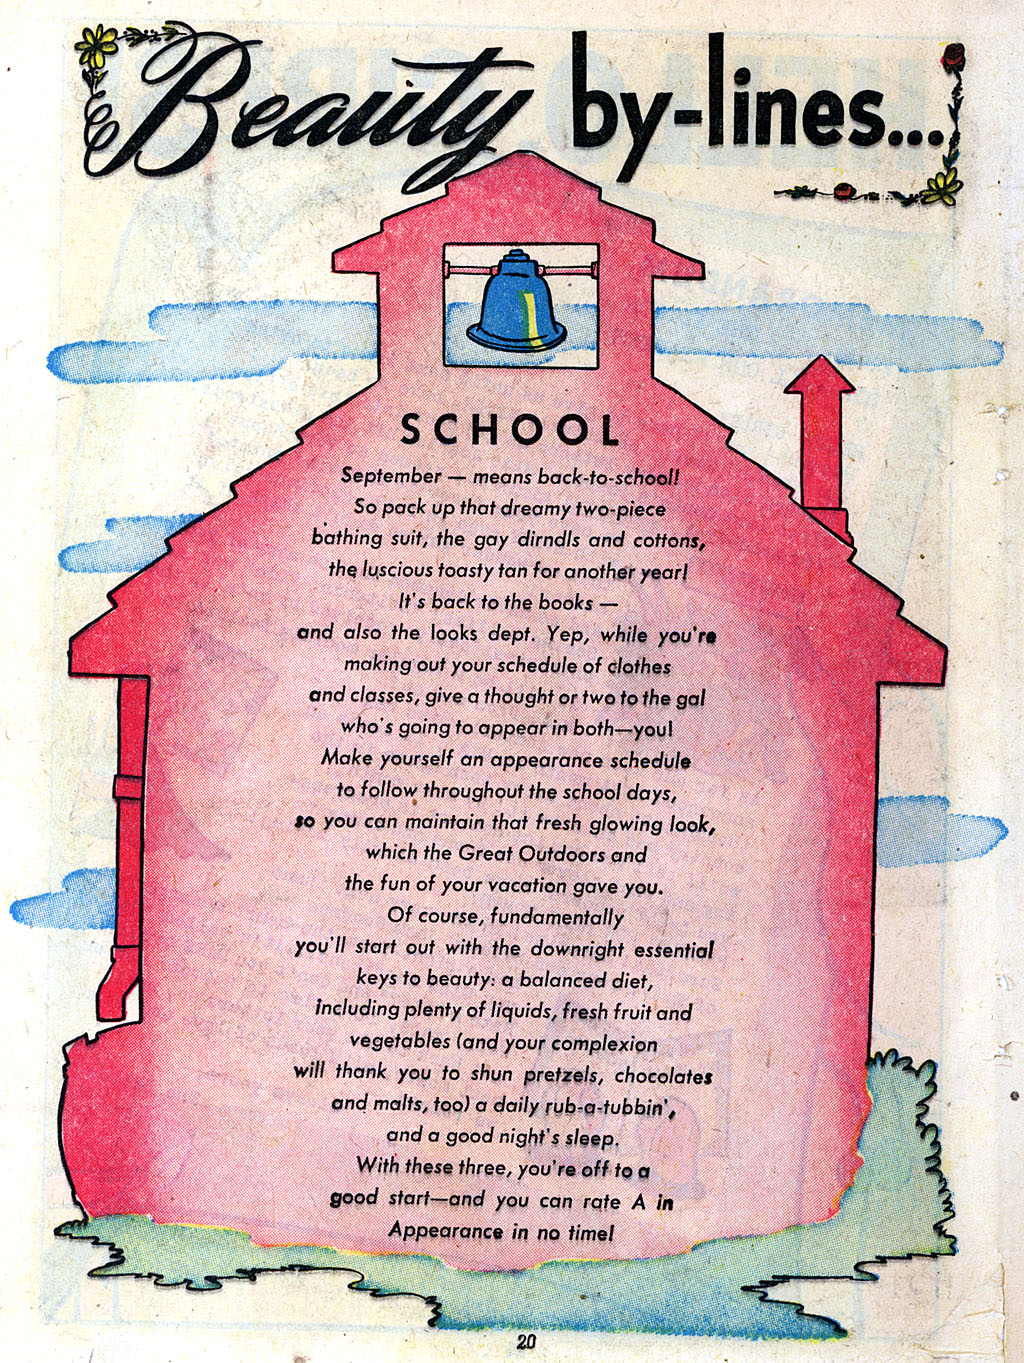 Beauty by-lines...
SCHOOL
September — means back-to-school!
So pack up that dreamy two-piece
bathing suit, the gay dirndls and cottons,
the luscious toasty tan for another year!
It's back to the books —
and also the looks dept. Yep, while you're
making out your schedule of clothes
and classes, give a thought or two to the gal
who's going to appear in both—you!
Make yourself an appearance schedule
to follow throughout the school days,
so you can maintain that fresh glowing look,
which the Great Outdoors and
the fun of your vacation gave you.
Of course, fundamentally
you'll start out with the downright essential
keys to beauty: a balanced diet,
including plenty of liquids, fresh fruit and
vegetables (and your complexion
will thank you to shun pretzels, chocolates
and malts, too) a daily rub-a-tubbin',
and a good night's sleep.
With these three, you're off to a
good start—and you can rate A in
Appearance in no time!
20